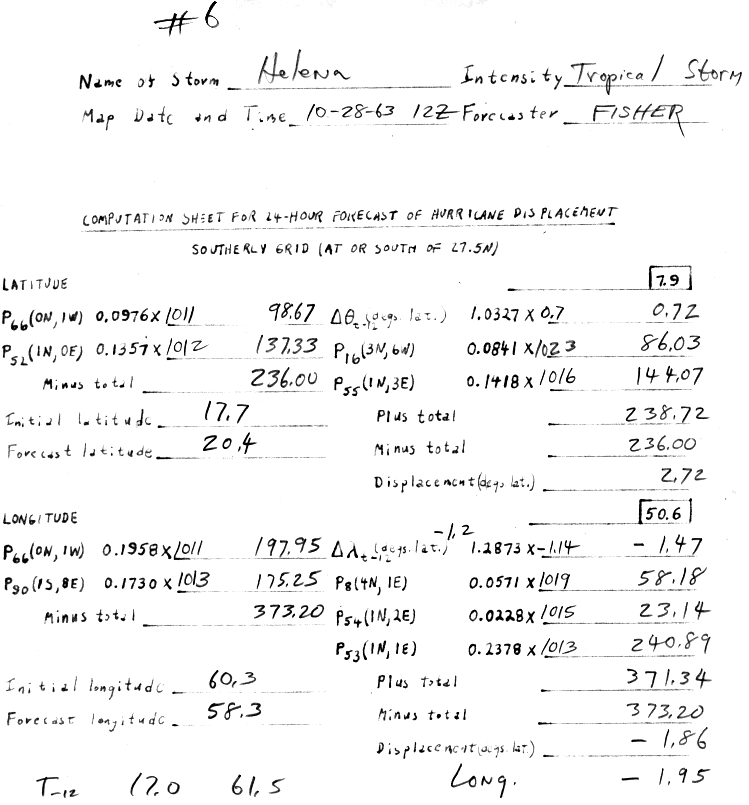 #6
Name of Storm Helena Intensity Tropical Storm
Map Date and Time 10-28-63 12Z Forecaster FISHER
COMPUTATION SHEET FOR 24-HOUR FORECAST OF HURRICANE DISPLACEMENT
SOUTHERLY GRID (AT OR SOUTH OF 27.5N)
LATITUDE 7.9
P66(0N, 1W) 0.0976 x 1011 98.67 Δθt-12 (degs. lat.) 1.0327 x 0.7 0.72
P52(1N, 0E) 0.1357 x 1012 137.33 P16(3N, 6W) 0.0841 x 1023 86.03
Minus total 236.00 P55(1N, 3E) 0.1418 x 1016 144.07
Initial latitude 17.7 Plus total 238.72
Forecast latitude 20.4 Minus total 236.00
Displacement (degs. lat.) 2.72
LONGITUDE 50.6
-1.2
P66(0N, 1W) 0.1958 x 1011 197.95 Δλt-12 (degs. lat.) 1.2873 x -1.14 - 1.47
P90(1S, 8E) 0.1730 x 1013 175.25 P8(4N, 1E) 0.0571 x 1019 58.18
Minus total 373.20 P54(1N, 2E) 0.0228 x 1015 23.14
P53(1N, 1E) 0.2378 x 1013 240.89
Initial longitude 60.3 Plus total 371.34
Forecast longitude 58.3 Minus total 373.20
Displacement (degs. lat.) - 1.86
T-12 17.0 61.5 Long. - 1.95